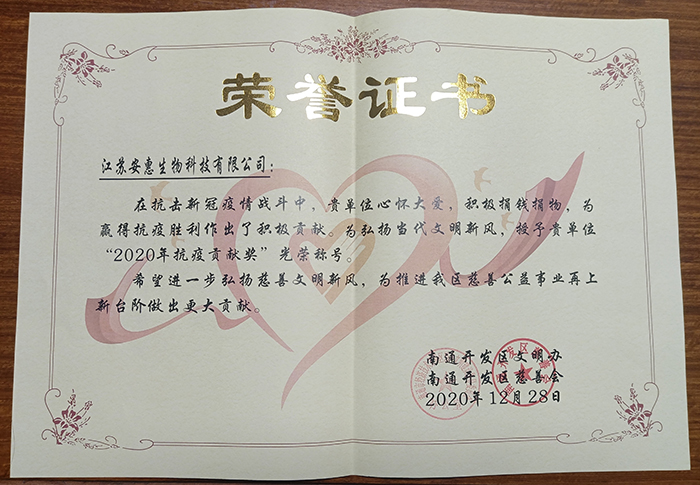 荣誉证书
江苏安惠生物科技有限公司：
在抗击新冠疫情战斗中，贵单位心怀大爱，积极捐钱捐物，为
赢得抗疫胜利作出了积极贡献。为弘扬当代文明新风，授予贵单位
“2020年抗疫贡献奖”光荣称号。
希望进一步弘扬慈善文明新风，为推进我区慈善公益事业再上
新台阶做出更大贡献。
南通开发区文明办
南通开发区慈善会
2020年12月28日